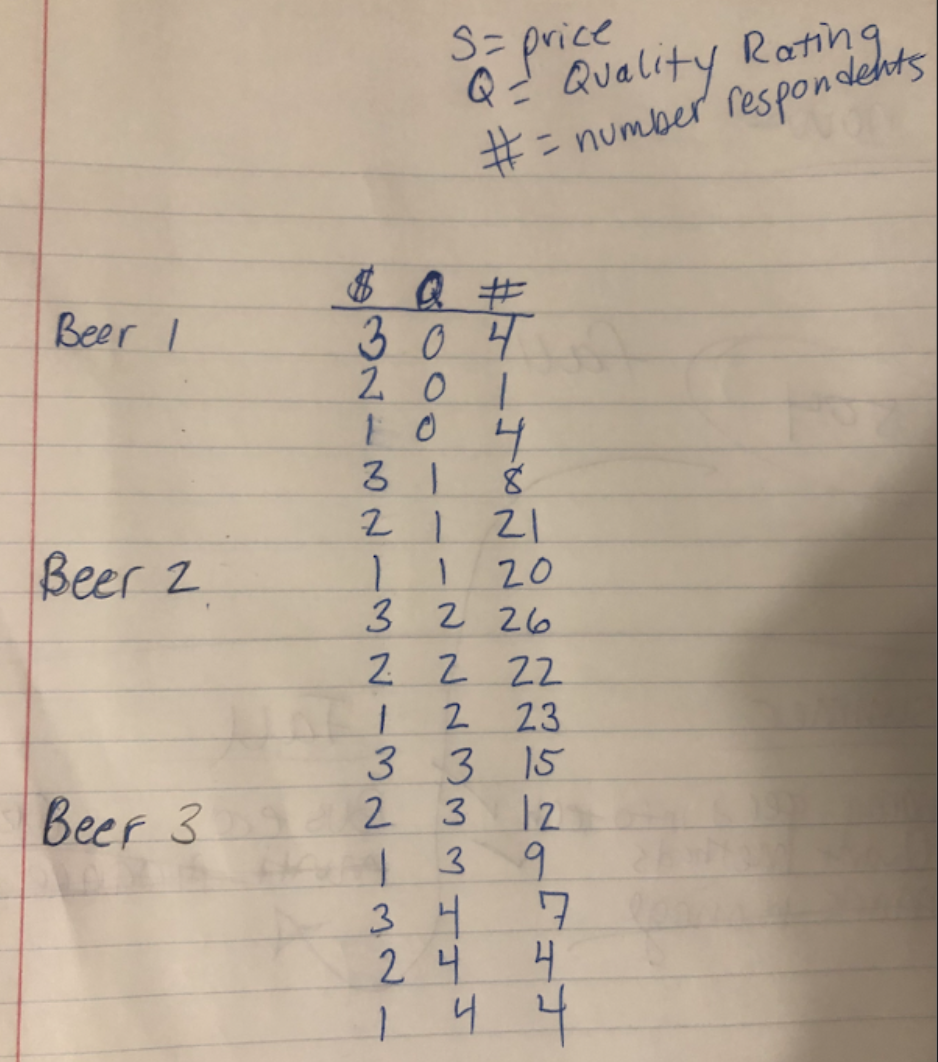 S = price
Q = Quality Rating
# = number respondents
$ Q #
Beer 1 3 0 4
2 0 1
1 0 4
3 1 8
2 1 21
Beer 2 1 1 20
3 2 26
2 2 22
1 2 23
3 3 15
Beer 3 2 3 12
1 3 9
3 4 7
2 4 4
1 4 4